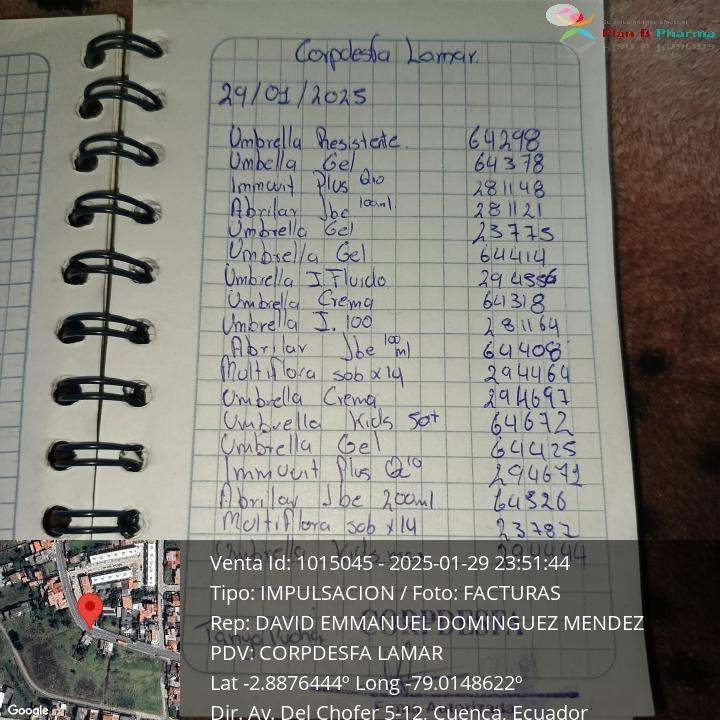 Plan B Pharma
Corpdesfa Lamar.
29/01/2025
Umbrella Resistente. 64298
Umbella Gel 64378
Immuvit Plus Q10 281148
Abrilar Jbe 100ml. 281121
Umbrella Gel 23775
Umbrella Gel 64414
Umbrella I Fluido 294556
Umbrella Crema 64318
Umbrella I. 100 281164
Abrilar Jbe 100 ml 64408
Multiflora sob x14 294464
Umbrella Crema 294697
Umbrella Kids 50+ 64672
Umbrella Gel 64425
Immuvit Plus Q10 294671
Abrilar Jbe 200ml 64326
Multiflora sob x14 23782
Umbrella Kids 294444
CORPDESFA
Venta Id: 1015045 - 2025-01-29 23:51:44
Tipo: IMPULSACION / Foto: FACTURAS
Rep: DAVID EMMANUEL DOMINGUEZ MENDEZ
PDV: CORPDESFA LAMAR
Lat -2.8876444º Long -79.0148622º
Dir. Av. Del Chofer 5-12, Cuenca, Ecuador
Google